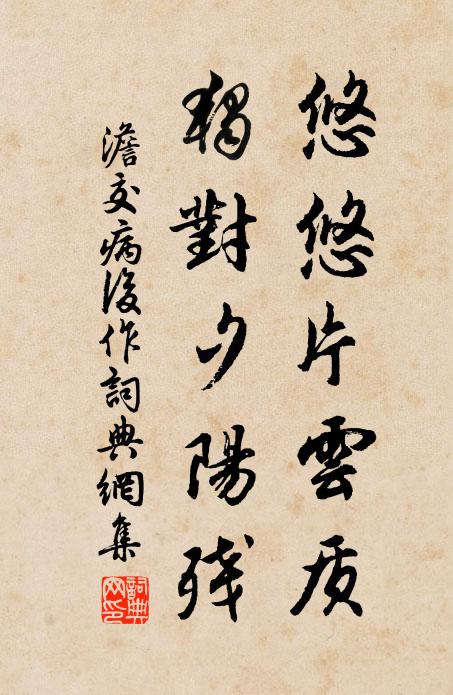 悠悠片雲质
獨對夕陽残
澹交病後作詞典網集
詞典網印